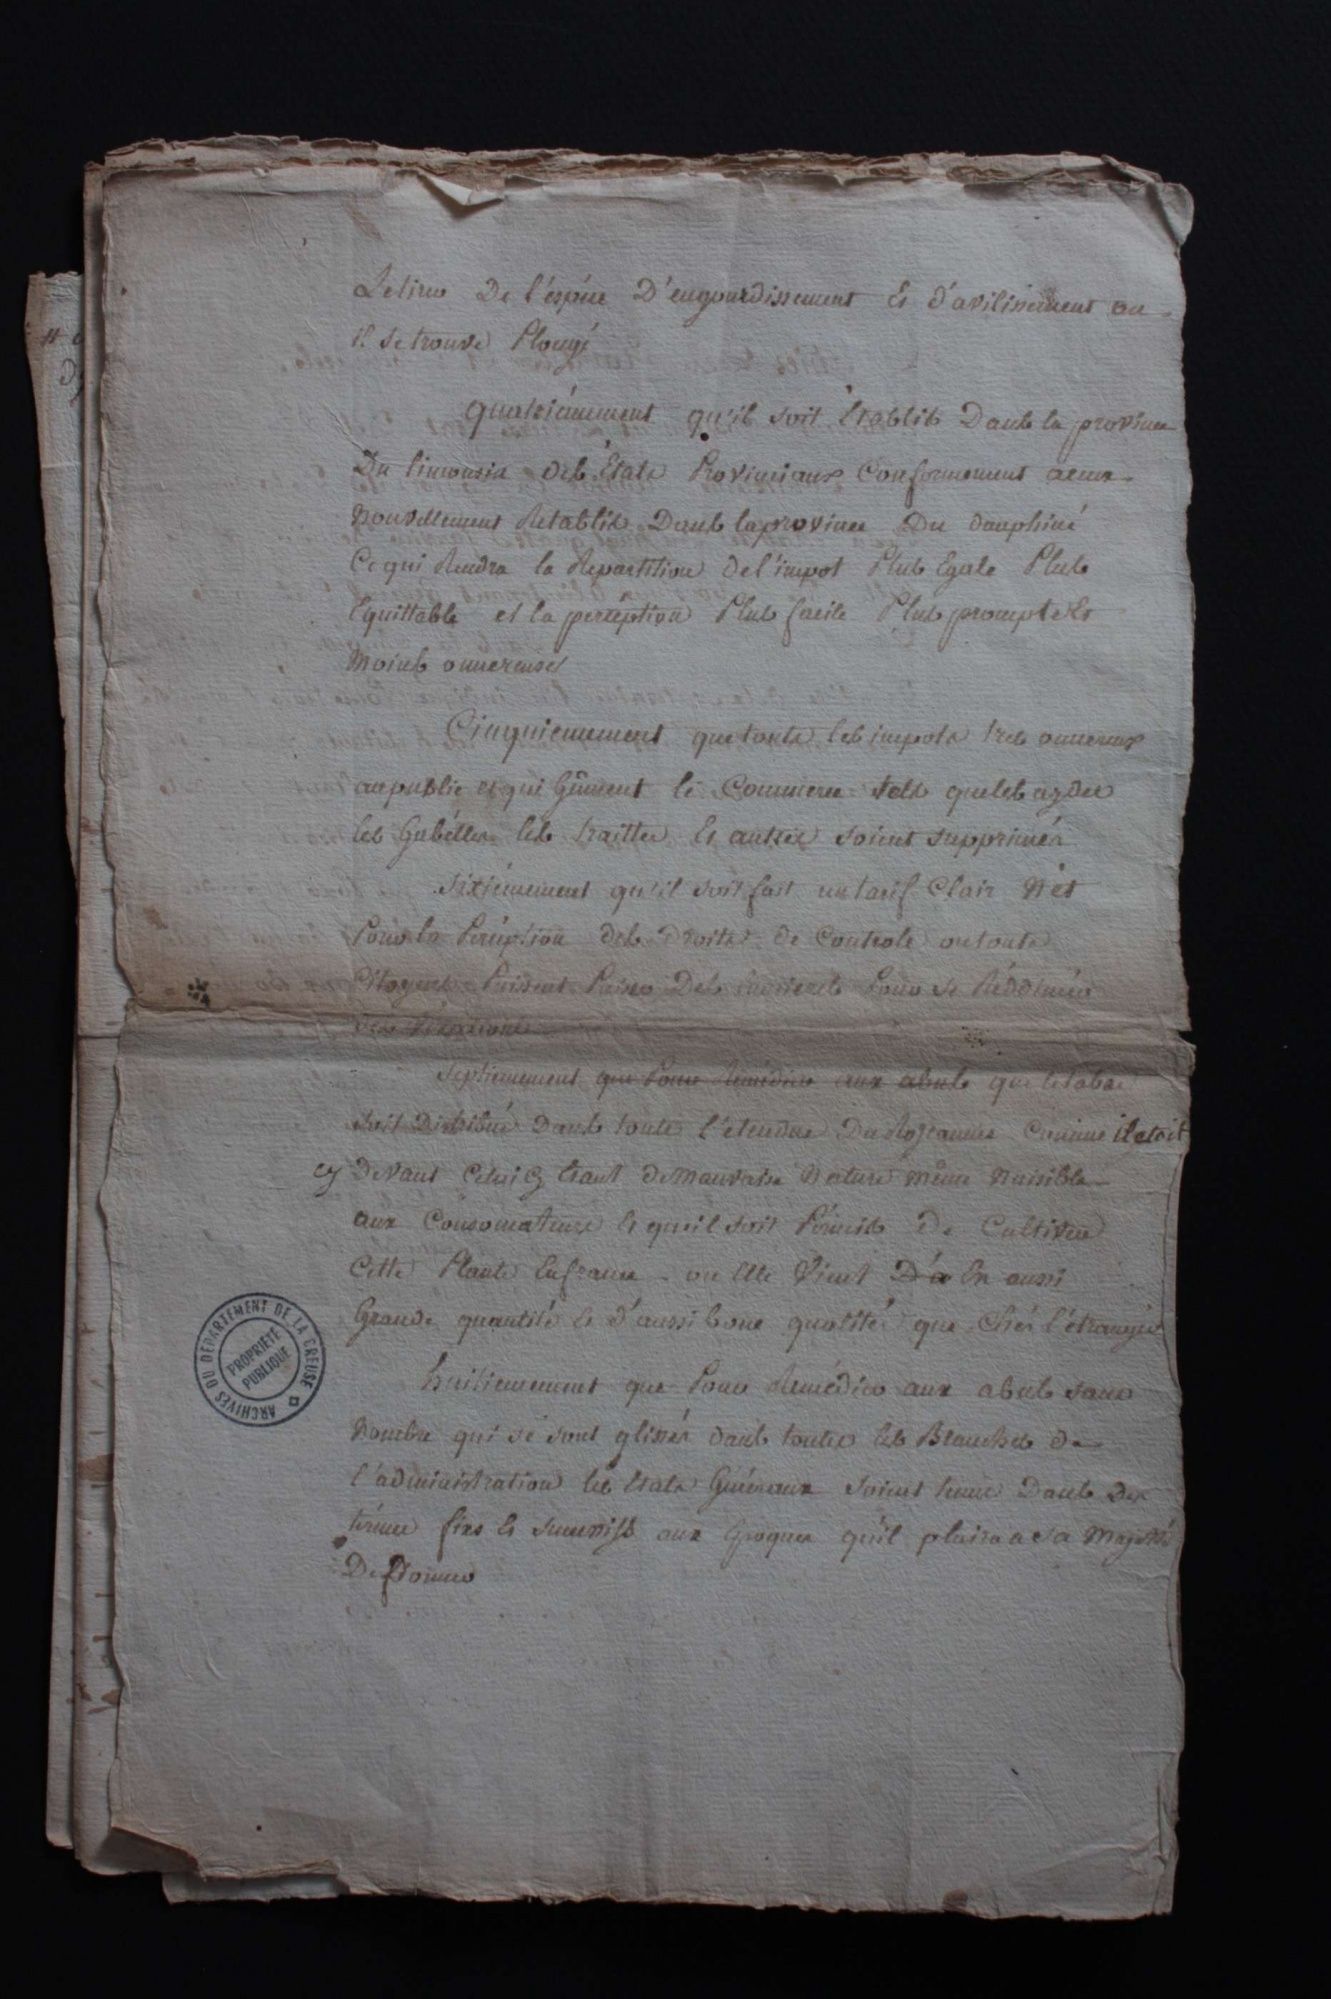 Retirer De l'espéce D'engourdissement Et d'avilissement ou
il se trouve Plongé
quatriémement qu'il soit Etablis Dans la province
Du limousin des Etats Provinciaux Conformement a ceux
Nouvellement Retablis Dans la province Du dauphiné
Ce qui Rendra la Repartition de l'impot Plus Egale Plus
Equittable et la perception Plus facile Plus prompte Et
Moins onnereuse
Cinquiemement que touts les impots tres onnereux
au publie et qui Gênent le Commerce tels que les aydes
les Gabélles les traittes Et autres soient supprimés
Sixiémement qu'il soit fait un tarif Clair Net
Pour la Perception des Droits de Controle ou touts
Citoyens Puissent Puiser Des Pour se Rédimér
des Vexations
Septiemement que Pour Remédier aux abus que le tabac
soit Distribué Dans toute l'étendue Du Royeaume Comme il etoit
cy Devant Celui cy Etant de Mauvaise Nature même Nuisible
aux Consomateurs Et qu'il soit Pérmis De Cultiver
Cette Plante En france ou Elle Vient D'a En aussi
Grande quantité Et d'aussi bone qualités que Chés l'étrangér
huitiemement que Pour Remédier aux abus sans
Nombre qui se sont glissés dans toutes les Branches de
l'administration les Etats Généraux soient tenus Dans des
términ fixe Et aux Epoques qu'il plaira a sa Majesté
De Donner
ARCHIVES DU DÉPARTEMENT DE LA CREUSE
PROPRIÉTÉ
PUBLIQUE